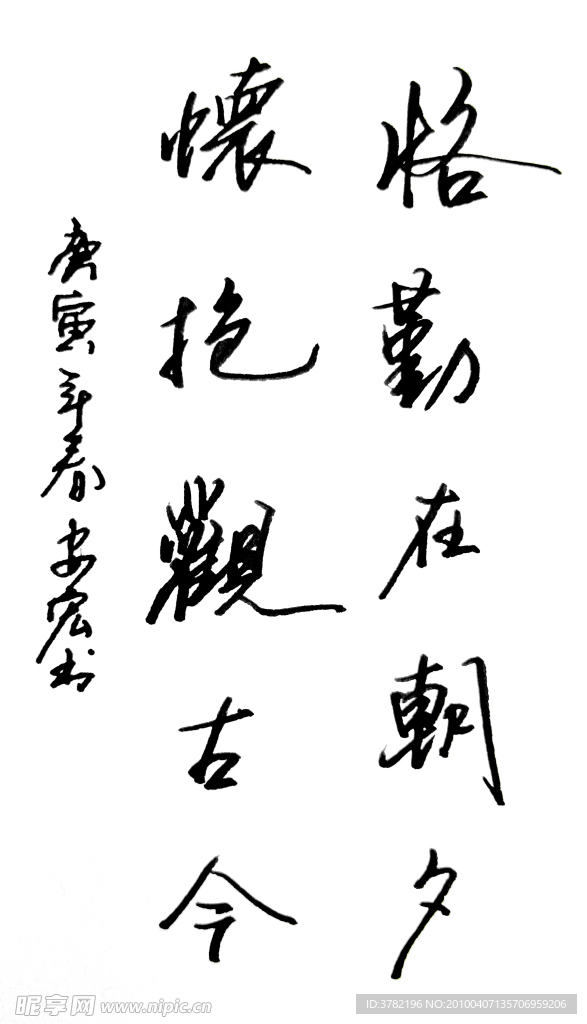 恪勤在朝夕
懷抱觀古今
庚寅年春安宏书
昵享网 www.nipic.cn
ID:3782196 NO:20100407135706959206